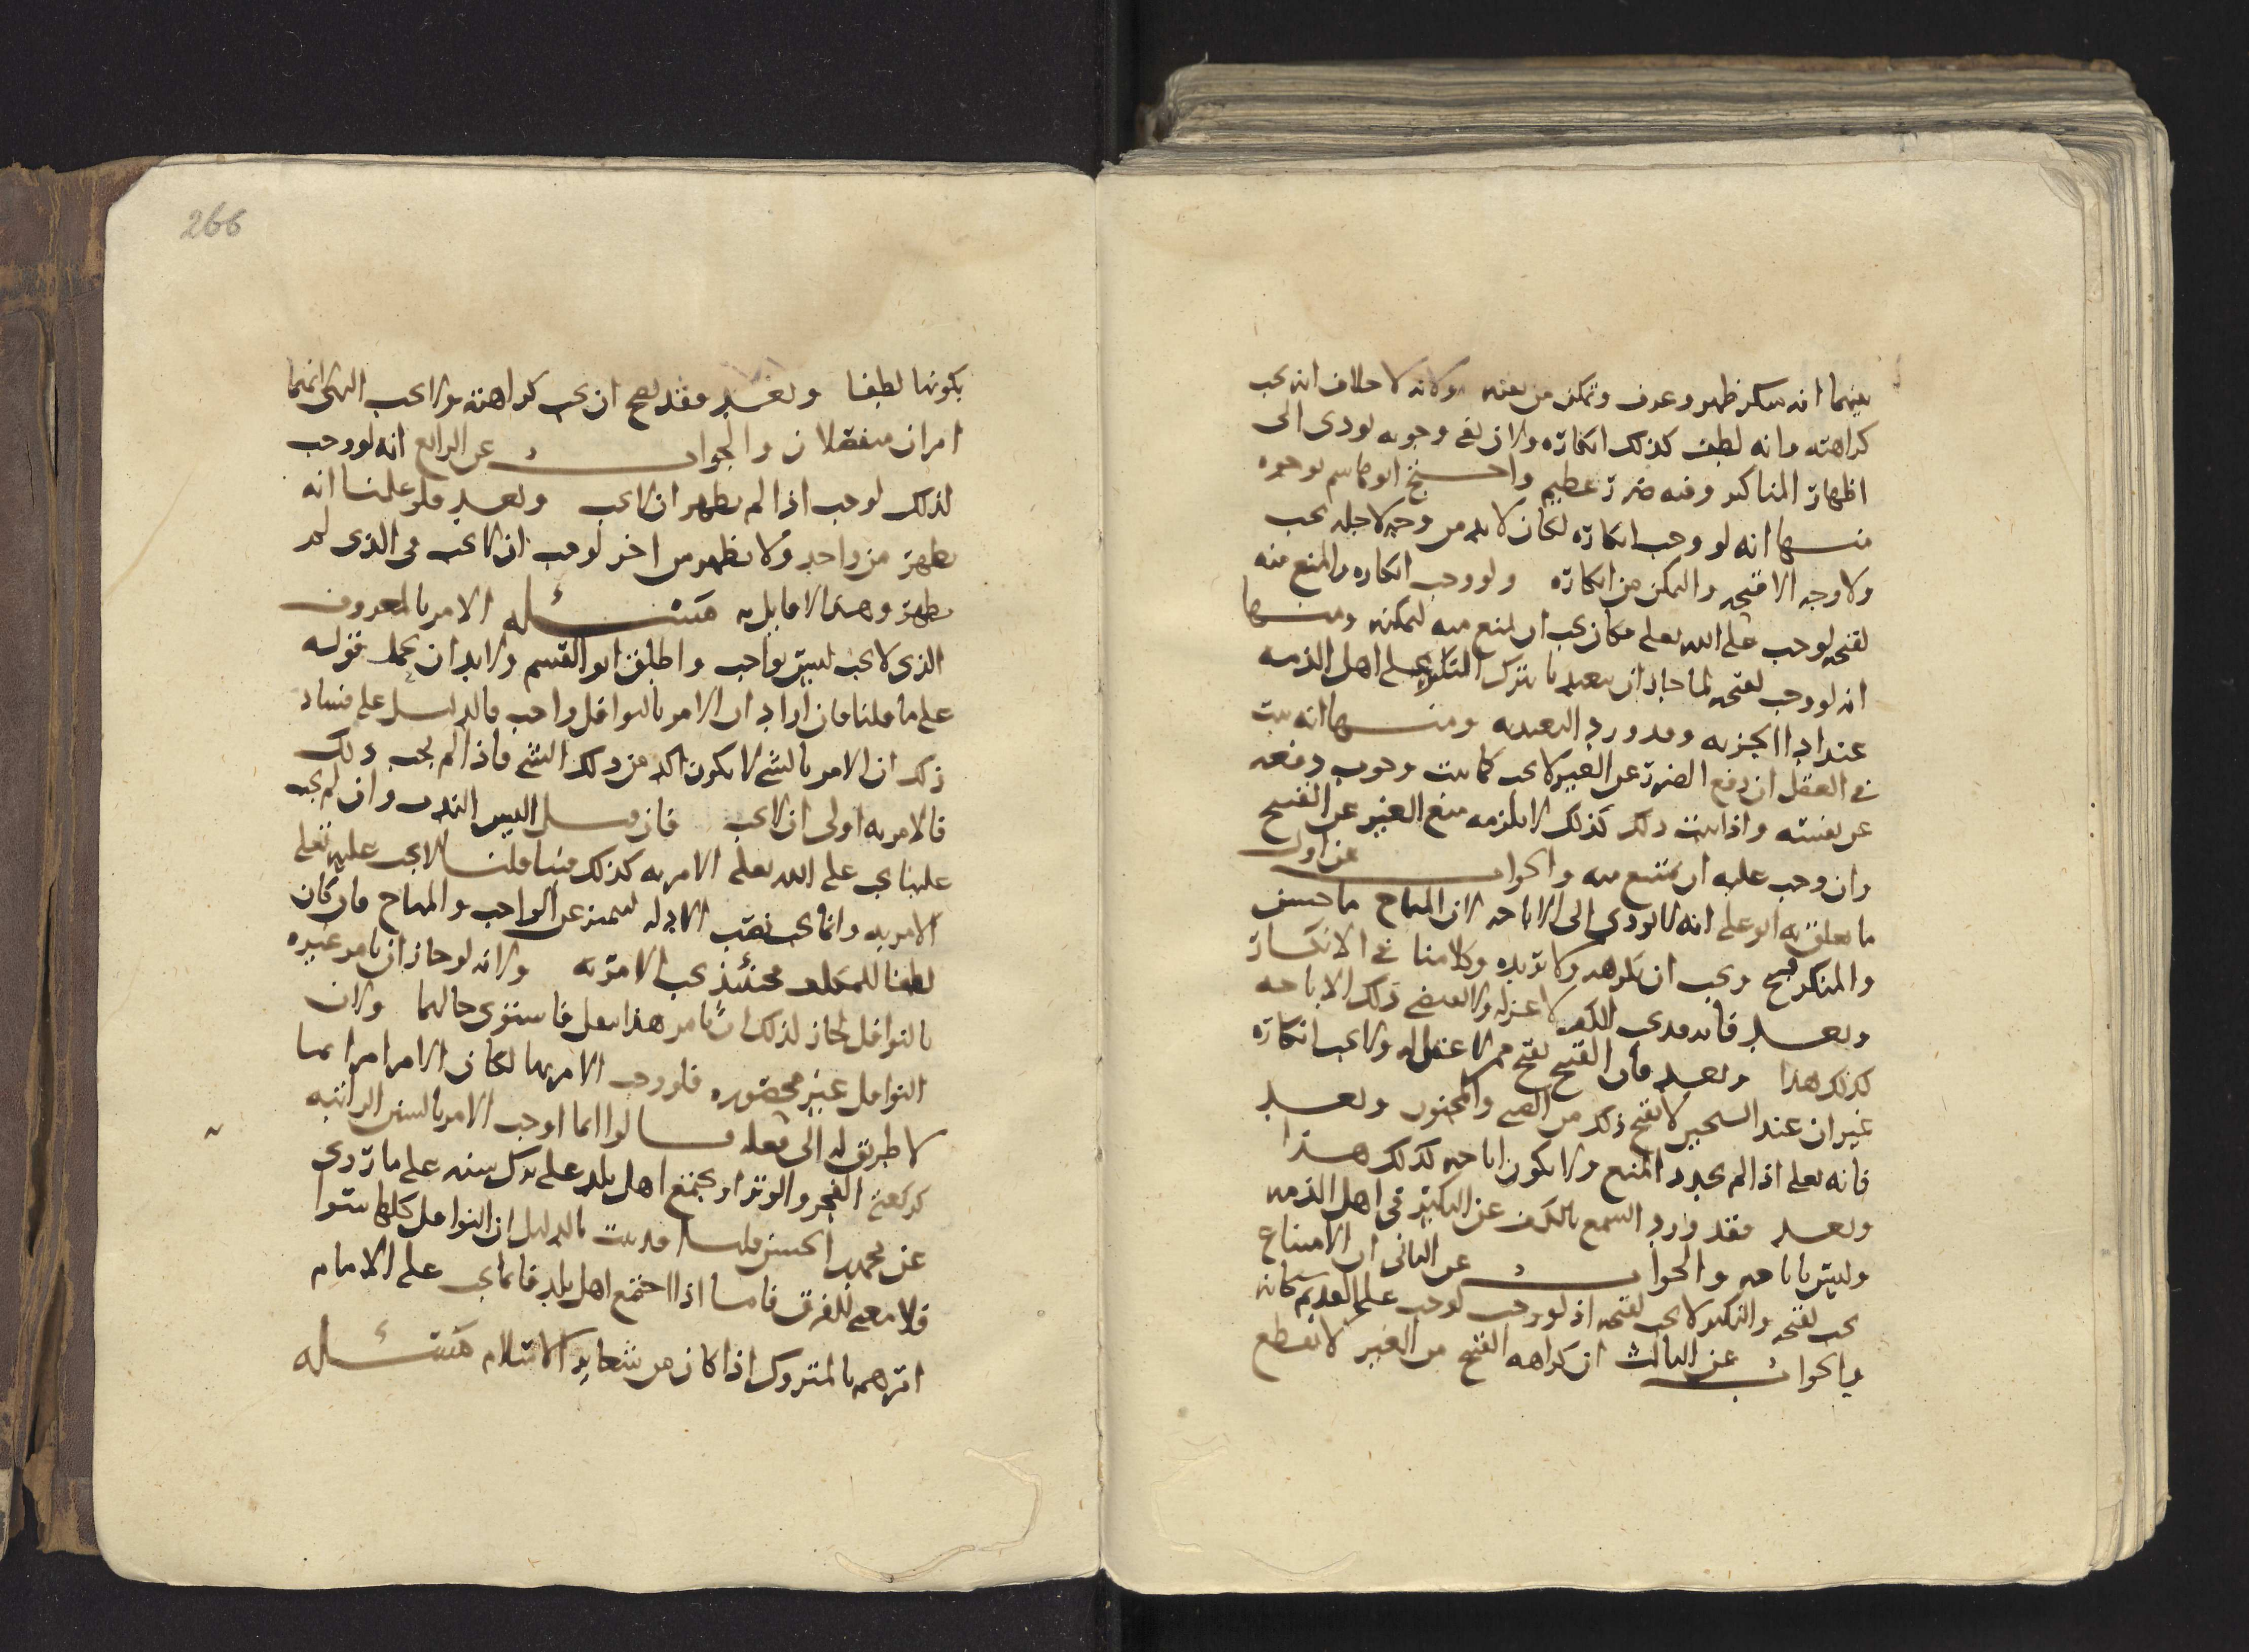 بينهما انه منكر ظهر وعرف وتمكن من نفيه ولانه لا خلاف انه يجب
كراهته وانه لطف كذلك انكاره ولان نفي وجوبه يودي الى
اظهار المناكير وفيه ضرر عظيم واحتج ابو هاشم بوجوه
منها انه لو وجب انكاره لكان لا بد من وجه لاجله يجب
ولا وجه الا قبحه والتمكن من انكاره ولو وجب انكاره والمنع منه
لقبحه لوجب على الله تعالى فكان يجب ان يمنع منه لتمكنه ومنها
انه لو وجب لقبحه لما جاز ان يتعبد بترك النكير على اهل الذمة
عند اداء الجزية وقد ورد التعبد به ومنها انه ثبت
في العقل ان دفع الضرر عن الغير لا يجب كما يثبت وجوب دفعه
عن نفسه واذا ثبت ذلك كذلك لا يلزمه منع الغير عن القبيح
وان وجب عليه ان يمتنع منه والجواب عن اول
ما تعلق به ابو علي انه لا يودي الى الاباحة لان المباح ما حسن
والمنكر قبيح ويجب ان يكرهه ولا يريده وكلامنا في الانكار
وبعد فانه قدى الكف لا عنزله ولا يقتضي ذلك الاباحة
كذلك هذا وبعد فان القبيح يقبح ممن لا عقل له ولا يجب انكاره
غير ان عند الشيخين لا يقبح ذلك من الصبي والمجنون وبعد
فانه تعالى اذا لم يجدد المنع ولا يكون اباحة كذلك هذا
وبعد فقد ورد السمع بالكف عن النكير في اهل الذمة
وليس باباحة والجواب عن الثاني ان الامتناع
يجب لقبحه والنكير لا يجب لقبحه اذ لو وجب لوجب على القديم كانه
والجواب عن الثالث ان كراهة القبيح من الغير لا يقطع
266
بكونها لطفا وبعد فقد يصح ان يجب كراهته ولا يجب النهي انهما
امران منفصلان والجواب عن الرابع انه لو وجب
لذلك لوجب اذا لم يظهر ان لا يجب وبعد فلو علمنا انه
يظهر من واحد ولا يظهر من اخر لوجب ان لا يجب في الذي لم
يظهر وهذا لا قايل به مسئله الامر بالمعروف
الذي لا يجب ليس بواجب واطلق ابو القسم ولا بد ان يحمل قوله
على ما قلنا فان اراد ان الامر بالنوافل واجب فالدليل على فساد
ذلك ان الامر بالشي لا يكون اكد من ذلك الشي فاذا لم يجب ذلك
فالامر به اولى ان لا يجب فان قيل اليس الندب وان لم يجب
علينا يجب على الله تعالى الامر به كذلك فينا قلنا لا يجب عليه تعالى
الامر به وانما يجب نصب الادلة ليتميز عن الواجب والمباح فان كان
لطفا للمكلف فحينئذ يجب الامر به ولانه لو جاز ان يامر غيره
بالنوافل لجاز لذلك ان يامر هذا بفعل فاستوى حالهما ولان
النوافل غير محصوره فلو وجب الامر بها لكان الامر امرا بما
لا طريق له الى فعله قالوا انما اوجب الامر بالسنن الراتبه
كركعتي الفجر والوتر او يجتمع اهل بلد على ترك سنه على ما روى
عن محمد بن الحسن قلنا قد ثبت بالدليل ان النوافل كلها سوا
فلا معنى للفرق فاما اذا اجتمع اهل بلد فانما يجب على الامام
امرهم بالمتروك اذا كان من شعاير الاسلام مسئله